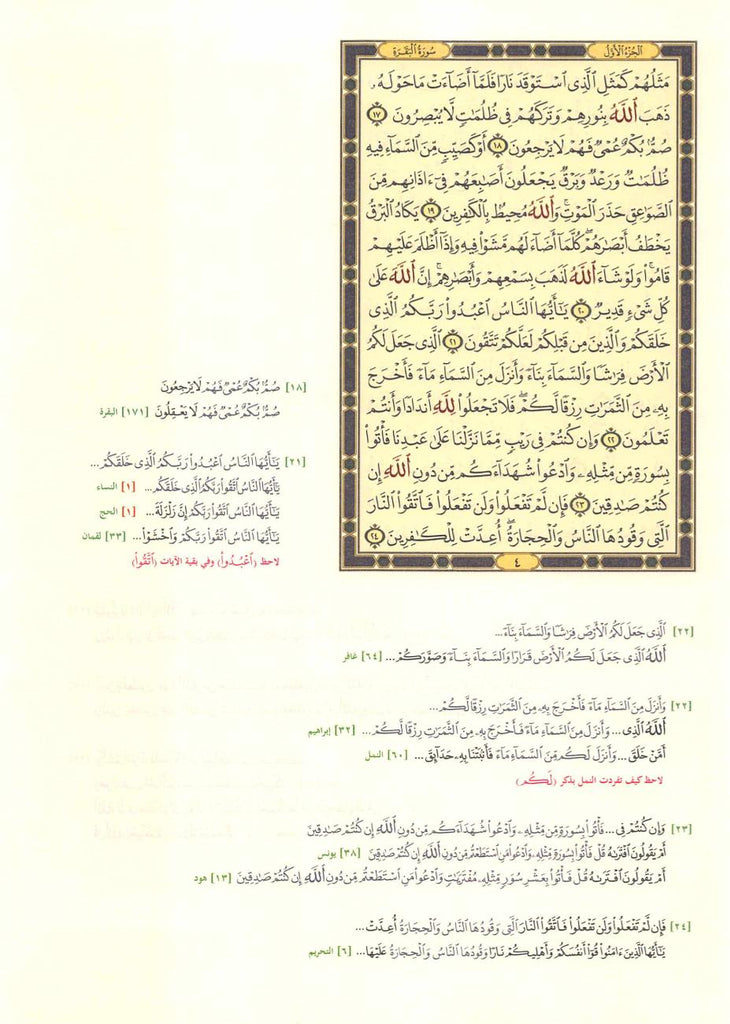 الجزء الأول
سورة البقرة
مَثَلُهُمْ كَمَثَلِ ٱلَّذِى ٱسْتَوْقَدَ نَارًا فَلَمَّآ أَضَآءَتْ مَا حَوْلَهُۥ
ذَهَبَ ٱللَّهُ بِنُورِهِمْ وَتَرَكَهُمْ فِى ظُلُمَٰتٍ لَّا يُبْصِرُونَ ١٧
صُمٌّۢ بُكْمٌ عُمْىٌ فَهُمْ لَا يَرْجِعُونَ ١٨ أَوْ كَصَيِّبٍ مِّنَ ٱلسَّمَآءِ فِيهِ
ظُلُمَٰتٌ وَرَعْدٌ وَبَرْقٌ يَجْعَلُونَ أَصَٰبِعَهُمْ فِىٓ ءَاذَانِهِم مِّنَ
ٱلصَّوَٰعِقِ حَذَرَ ٱلْمَوْتِ ۚ وَٱللَّهُ مُحِيطٌۢ بِٱلْكَٰفِرِينَ ١٩ يَكَادُ ٱلْبَرْقُ
يَخْطَفُ أَبْصَٰرَهُمْ ۖ كُلَّمَآ أَضَآءَ لَهُم مَّشَوْا۟ فِيهِ وَإِذَآ أَظْلَمَ عَلَيْهِمْ
قَامُوا۟ ۚ وَلَوْ شَآءَ ٱللَّهُ لَذَهَبَ بِسَمْعِهِمْ وَأَبْصَٰرِهِمْ ۚ إِنَّ ٱللَّهَ عَلَىٰ
كُلِّ شَىْءٍ قَدِيرٌ ٢٠ يَٰٓأَيُّهَا ٱلنَّاسُ ٱعْبُدُوا۟ رَبَّكُمُ ٱلَّذِى
خَلَقَكُمْ وَٱلَّذِينَ مِن قَبْلِكُمْ لَعَلَّكُمْ تَتَّقُونَ ٢١ ٱلَّذِى جَعَلَ لَكُمُ
ٱلْأَرْضَ فِرَٰشًا وَٱلسَّمَآءَ بِنَآءً وَأَنزَلَ مِنَ ٱلسَّمَآءِ مَآءً فَأَخْرَجَ
بِهِۦ مِنَ ٱلثَّمَرَٰتِ رِزْقًا لَّكُمْ ۖ فَلَا تَجْعَلُوا۟ لِلَّهِ أَندَادًا وَأَنتُمْ
تَعْلَمُونَ ٢٢ وَإِن كُنتُمْ فِى رَيْبٍ مِّمَّا نَزَّلْنَا عَلَىٰ عَبْدِنَا فَأْتُوا۟
بِسُورَةٍ مِّن مِّثْلِهِۦ وَٱدْعُوا۟ شُهَدَآءَكُم مِّن دُونِ ٱللَّهِ إِن
كُنتُمْ صَٰدِقِينَ ٢٣ فَإِن لَّمْ تَفْعَلُوا۟ وَلَن تَفْعَلُوا۟ فَٱتَّقُوا۟ ٱلنَّارَ
ٱلَّتِى وَقُودُهَا ٱلنَّاسُ وَٱلْحِجَارَةُ ۖ أُعِدَّتْ لِلْكَٰفِرِينَ ٢٤
٤
[١٨] صُمٌّۢ بُكْمٌ عُمْىٌ فَهُمْ لَا يَرْجِعُونَ
صُمٌّۢ بُكْمٌ عُمْىٌ فَهُمْ لَا يَعْقِلُونَ [١٧١] البقرة
[٢١] يَٰٓأَيُّهَا ٱلنَّاسُ ٱعْبُدُوا۟ رَبَّكُمُ ٱلَّذِى خَلَقَكُمْ...
يَٰٓأَيُّهَا ٱلنَّاسُ ٱتَّقُوا۟ رَبَّكُمُ ٱلَّذِى خَلَقَكُم... [١] النساء
يَٰٓأَيُّهَا ٱلنَّاسُ ٱتَّقُوا۟ رَبَّكُمْ إِنَّ زَلْزَلَةَ... [١] الحج
يَٰٓأَيُّهَا ٱلنَّاسُ ٱتَّقُوا۟ رَبَّكُمْ وَٱخْشَوْا۟... [٣٣] لقمان
لاحظ (ٱعْبُدُوا۟) وفي بقية الآيات (ٱتَّقُوا۟)
[٢٢] ٱلَّذِى جَعَلَ لَكُمُ ٱلْأَرْضَ فِرَٰشًا وَٱلسَّمَآءَ بِنَآءً...
ٱللَّهُ ٱلَّذِى جَعَلَ لَكُمُ ٱلْأَرْضَ قَرَارًا وَٱلسَّمَآءَ بِنَآءً وَصَوَّرَكُمْ... [٦٤] غافر
[٢٢] وَأَنزَلَ مِنَ ٱلسَّمَآءِ مَآءً فَأَخْرَجَ بِهِۦ مِنَ ٱلثَّمَرَٰتِ رِزْقًا لَّكُمْ...
ٱللَّهُ ٱلَّذِى... وَأَنزَلَ مِنَ ٱلسَّمَآءِ مَآءً فَأَخْرَجَ بِهِۦ مِنَ ٱلثَّمَرَٰتِ رِزْقًا لَّكُمْ... [٣٢] إبراهيم
أَمَّنْ خَلَقَ... وَأَنزَلَ لَكُم مِّنَ ٱلسَّمَآءِ مَآءً فَأَنۢبَتْنَا بِهِۦ حَدَآئِقَ... [٦٠] النمل
لاحظ كيف تفردت النمل بذكر (لَكُم)
[٢٣] وَإِن كُنتُمْ فِى... فَأْتُوا۟ بِسُورَةٍ مِّن مِّثْلِهِۦ وَٱدْعُوا۟ شُهَدَآءَكُم مِّن دُونِ ٱللَّهِ إِن كُنتُمْ صَٰدِقِينَ
أَمْ يَقُولُونَ ٱفْتَرَىٰهُ قُلْ فَأْتُوا۟ بِسُورَةٍ مِّثْلِهِۦ وَٱدْعُوا۟ مَنِ ٱسْتَطَعْتُم مِّن دُونِ ٱللَّهِ إِن كُنتُمْ صَٰدِقِينَ [٣٨] يونس
أَمْ يَقُولُونَ ٱفْتَرَىٰهُ قُلْ فَأْتُوا۟ بِعَشْرِ سُوَرٍ مِّثْلِهِۦ مُفْتَرَيَٰتٍ وَٱدْعُوا۟ مَنِ ٱسْتَطَعْتُم مِّن دُونِ ٱللَّهِ إِن كُنتُمْ صَٰدِقِينَ [١٣] هود
[٢٤] فَإِن لَّمْ تَفْعَلُوا۟ وَلَن تَفْعَلُوا۟ فَٱتَّقُوا۟ ٱلنَّارَ ٱلَّتِى وَقُودُهَا ٱلنَّاسُ وَٱلْحِجَارَةُ أُعِدَّتْ...
يَٰٓأَيُّهَا ٱلَّذِينَ ءَامَنُوا۟ قُوٓا۟ أَنفُسَكُمْ وَأَهْلِيكُمْ نَارًا وَقُودُهَا ٱلنَّاسُ وَٱلْحِجَارَةُ عَلَيْهَا... [٦] التحريم